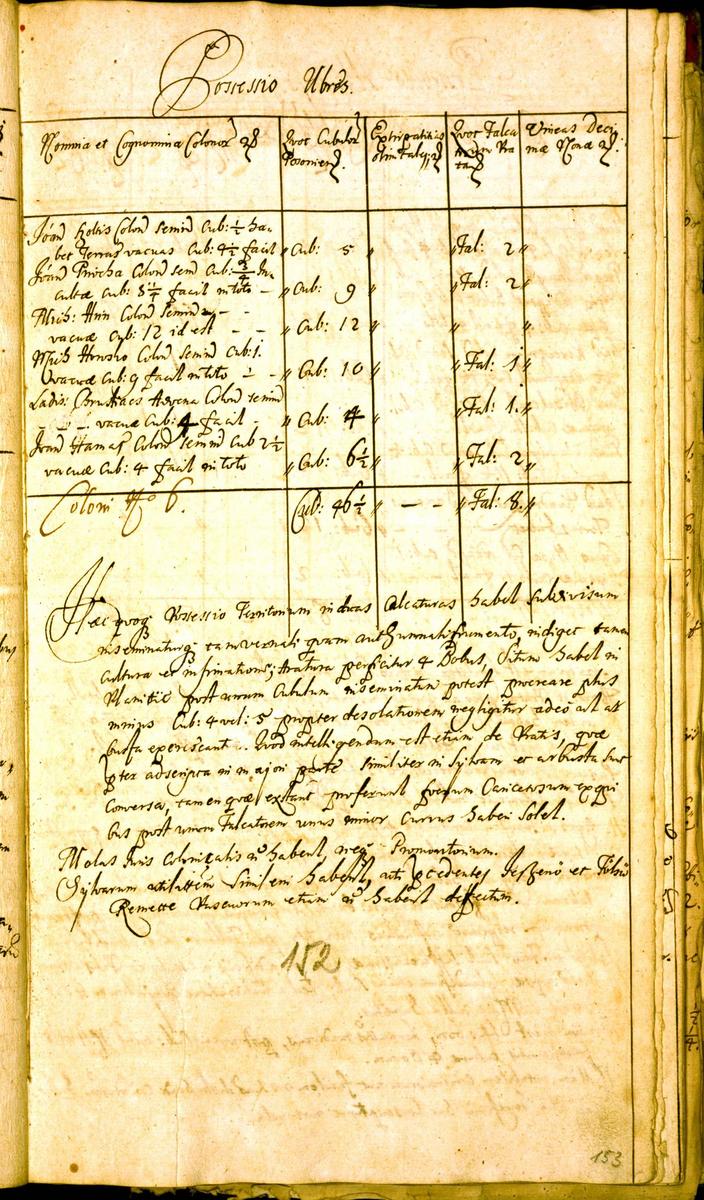 Possessio Ubres.
Nomina et Cognomina Colonor
Quot Cubulor
Extirpatitias
Quot Falca
Vineas Deci
olim Falc
mæ Nonæ
Joan Colon semin Cub: ½ ha
bet Terras vacuas Cub: 4½ facit
Cub: 5
Fal: 2
Joan Colon sem Cub: ¾ In
cultæ Cub: 8¼ facit in toto
Cub: 9
Fal: 2
Mich: Colon semin
vacuæ Cub: 12 id est
Cub: 12
Mich Colon semin Cub: 1.
vacuæ Cub: 9 facit in toto
Cub: 10
Fal: 1
Ladis: Colon semin
vacuæ Cub: 4 facit
Cub: 4
Fal: 1.
Joan Colon semin Cub 2½
vacuæ Cub: 4 facit in toto
Cub: 6½
Fal: 2
Coloni No 6.
Cub: 46½
Fal: 8.
Hæc quoq Possessio Territorium in duas Calcaturas habet subdivisum
inseminaturq tam vernali quam authumnali frumento, indiget tamen
cultura et Aratura perficitur 4 Bobus, Situm habet in
Planitie post unum Cubulum inseminatum potest procreare plus
minus Cub: 4 vel: 5 propter desolationem negligitur adeo ut ar
busta Quod intelligendum est etiam de Pratis, quæ
pter adscripta in majori parte similiter in Sylvam et arbusta sunt
conversa, tamen quæ extant proferunt Caricetosum ex qui
bus post unum Falcatorem unus minor Currus haberi solet.
Molas Juris Colonicalis habent, neq Promontorium.
Sylvarum similem habent, uti pcedentes et
Remette Pascuorum etiam habent defectum.
152
153